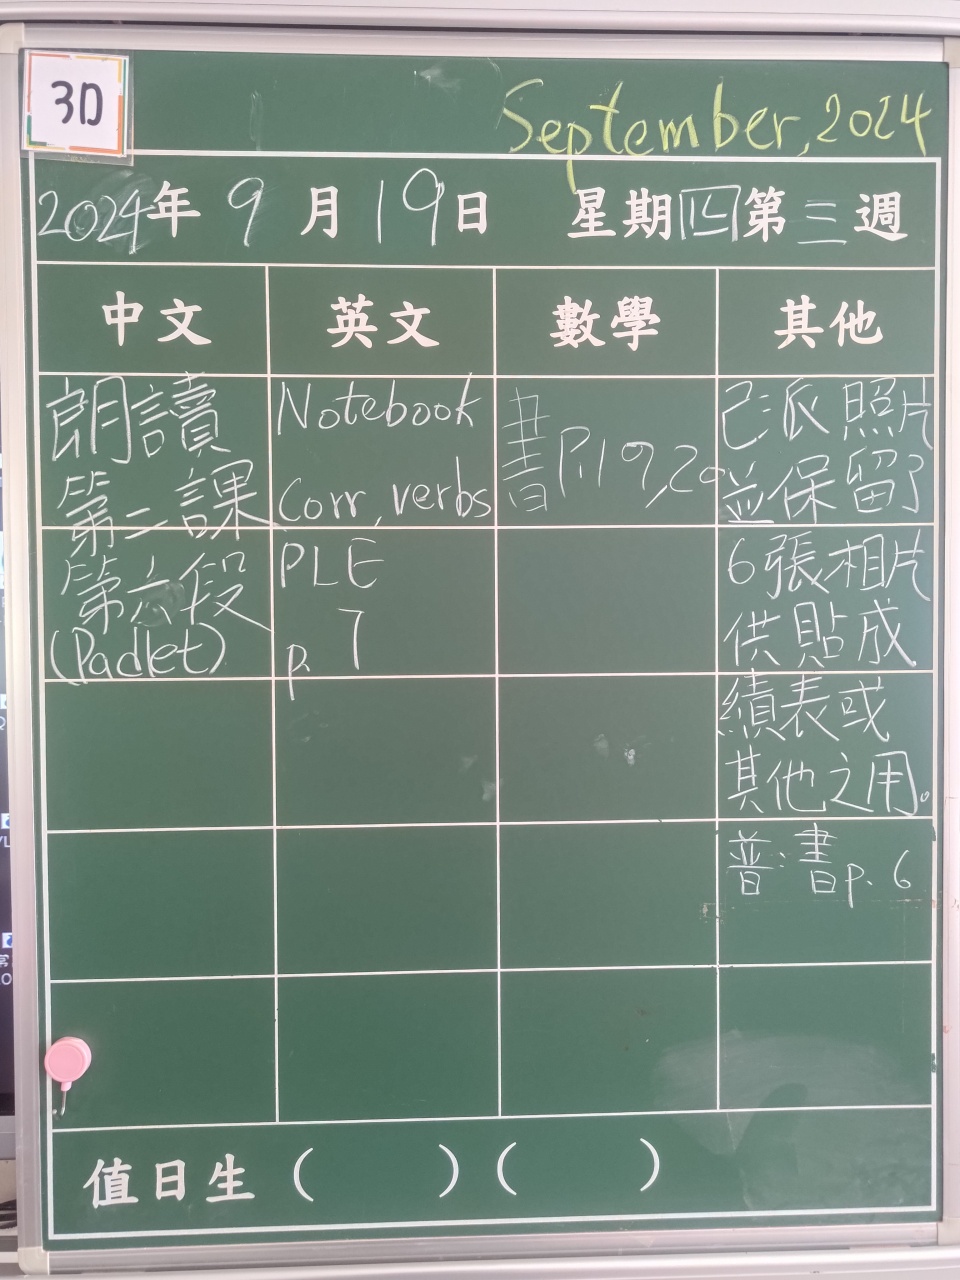 3D
September, 2024
2024年 9 月 19 日 星期四第三週
中文 英文 數學 其他
朗讀
第二課
第六段
(Padlet)
Notebook
Corr, verbs
PLE
p. 7
書P.19,20
已派照片
並保留了
6張相片
供貼成
績表或
其他之用。
普:書p. 6
值日生 ( ) ( )